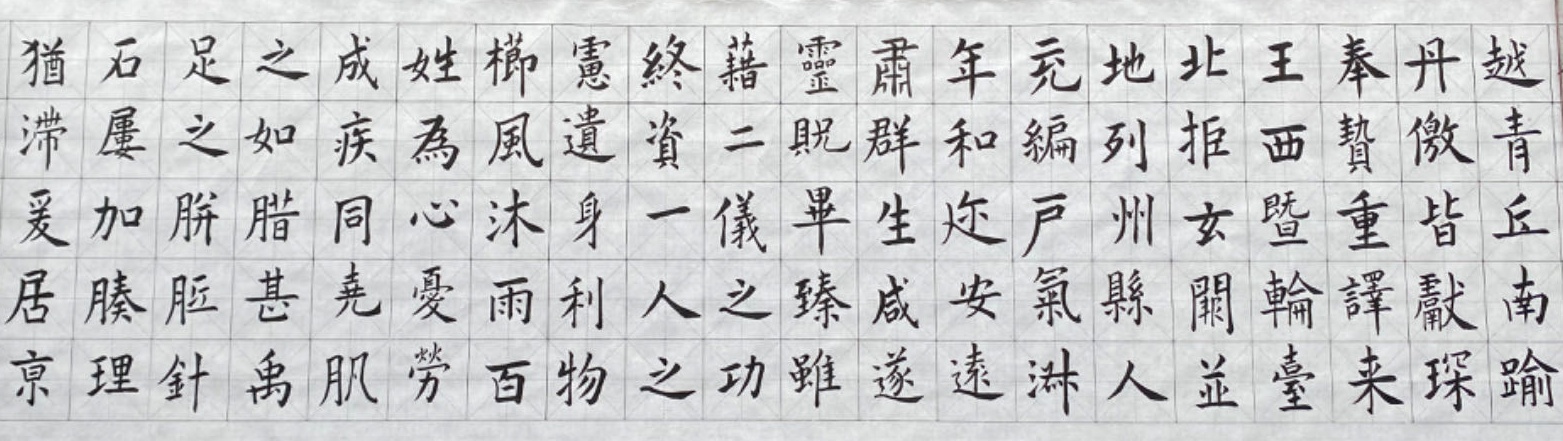 越青丘南踰
丹徼皆獻琛
奉贄重譯来
王西暨輪臺
北拒玄闕並
地列州縣人
充編戶氣淑
年和迩安遠
肅群生咸遂
靈貺畢臻雖
藉二儀之功
終資一人之
慮遺身利物
櫛風沐雨百
姓為心憂勞
成疾同堯肌
之如腊甚禹
足之胼胝針
石屢加腠理
猶滯爰居亰